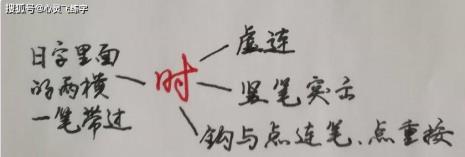 搜狐号@心灵飞练字
日字里面
的两横
一笔带过
时
虚连
竖笔实示
钩与点连笔、点重按